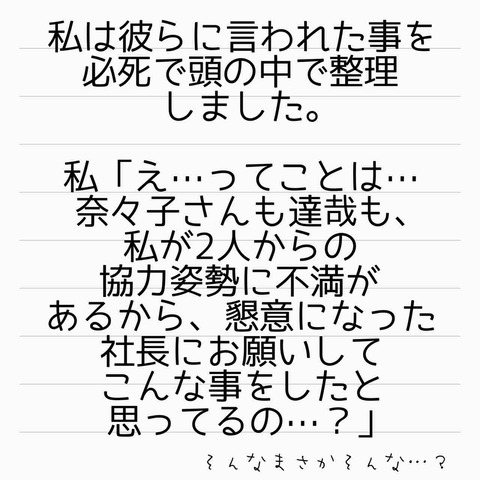 私は彼らに言われた事を
必死で頭の中で整理
しました。
私「え…ってことは…
奈々子さんも達哉も、
私が2人からの
協力姿勢に不満が
あるから、懇意になった
社長にお願いして
こんな事をしたと
思ってるの…？」
そんなまさかそんな…？